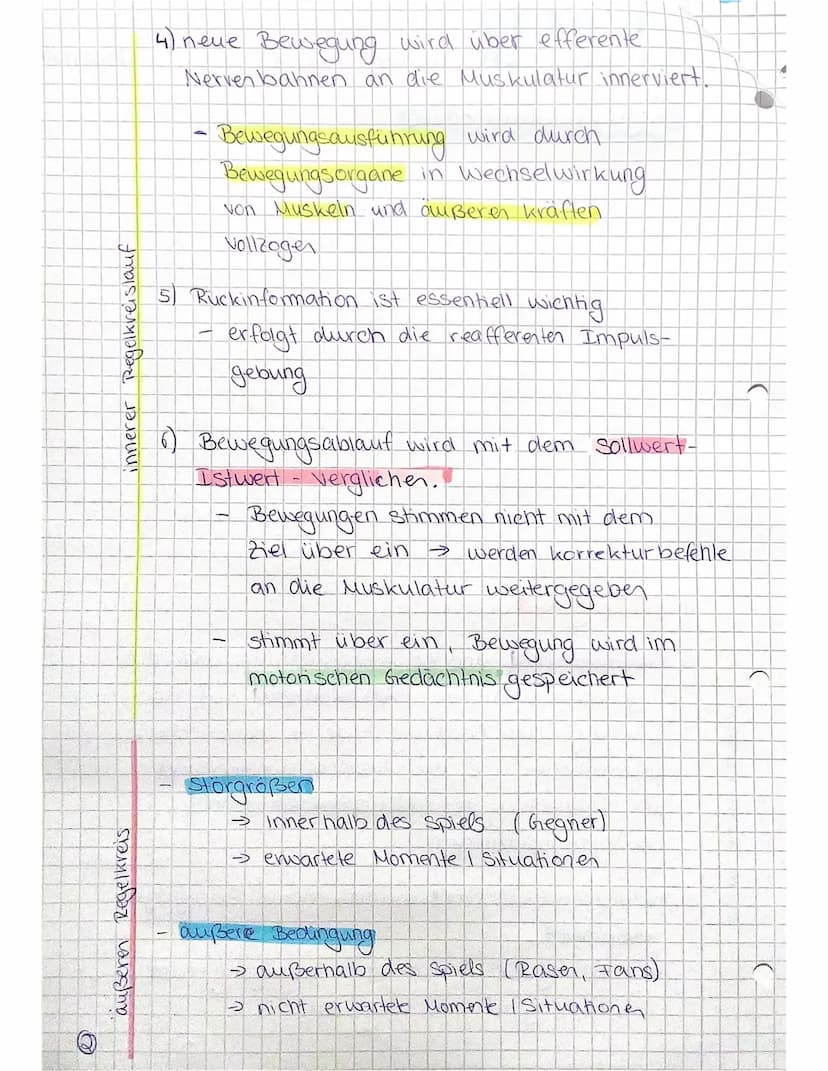 4) neue Bewegung wird über efferente
Nervenbahnen an die Muskulatur innerviert.
- Bewegungsausführung wird durch
Bewegungsorgane in Wechselwirkung
von Muskeln und äußeren kräften
vollzogen
innerer Regelkreislauf
5) Rückinformation ist essentiell wichtig
- erfolgt durch die reafferenten Impuls-
gebung
6) Bewegungsablauf wird mit dem Sollwert-
Istwert - verglichen.
- Bewegungen stimmen nicht mit dem
Ziel über ein → werden korrekturbefehle
an die Muskulatur weitergegeben
- stimmt über ein, Bewegung wird im
motorischen Gedächtnis gespeichert
äußeren Regelkreis
- Störgrößen
→ innerhalb des Spiels (Gegner)
→ erwartete Momente / Situationen
- äußere Bedingung
→ außerhalb des Spiels (Rasen, Fans)
→ nicht erwartete Momente / Situationen
2